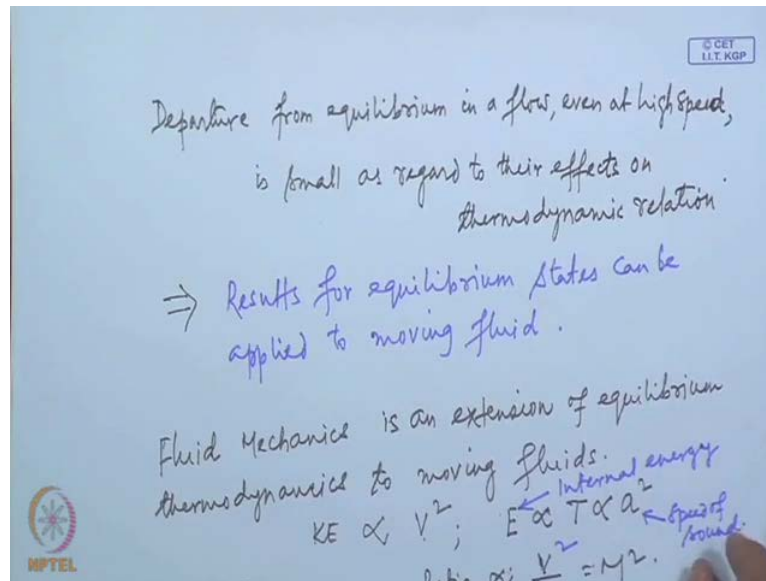 © CET
I.I.T. KGP
Departure from equilibrium in a flow, even at high speed,
is small as regard to their effects on
thermodynamic relation
⇒ Results for equilibrium states can be
applied to moving fluid.
Fluid Mechanics is an extension of equilibrium
thermodynamics to moving fluids.
Internal energy
KE ∝ V²; E ∝ T ∝ a² ← speed of
sound.
Ratio ∝ V² = M².
NPTEL